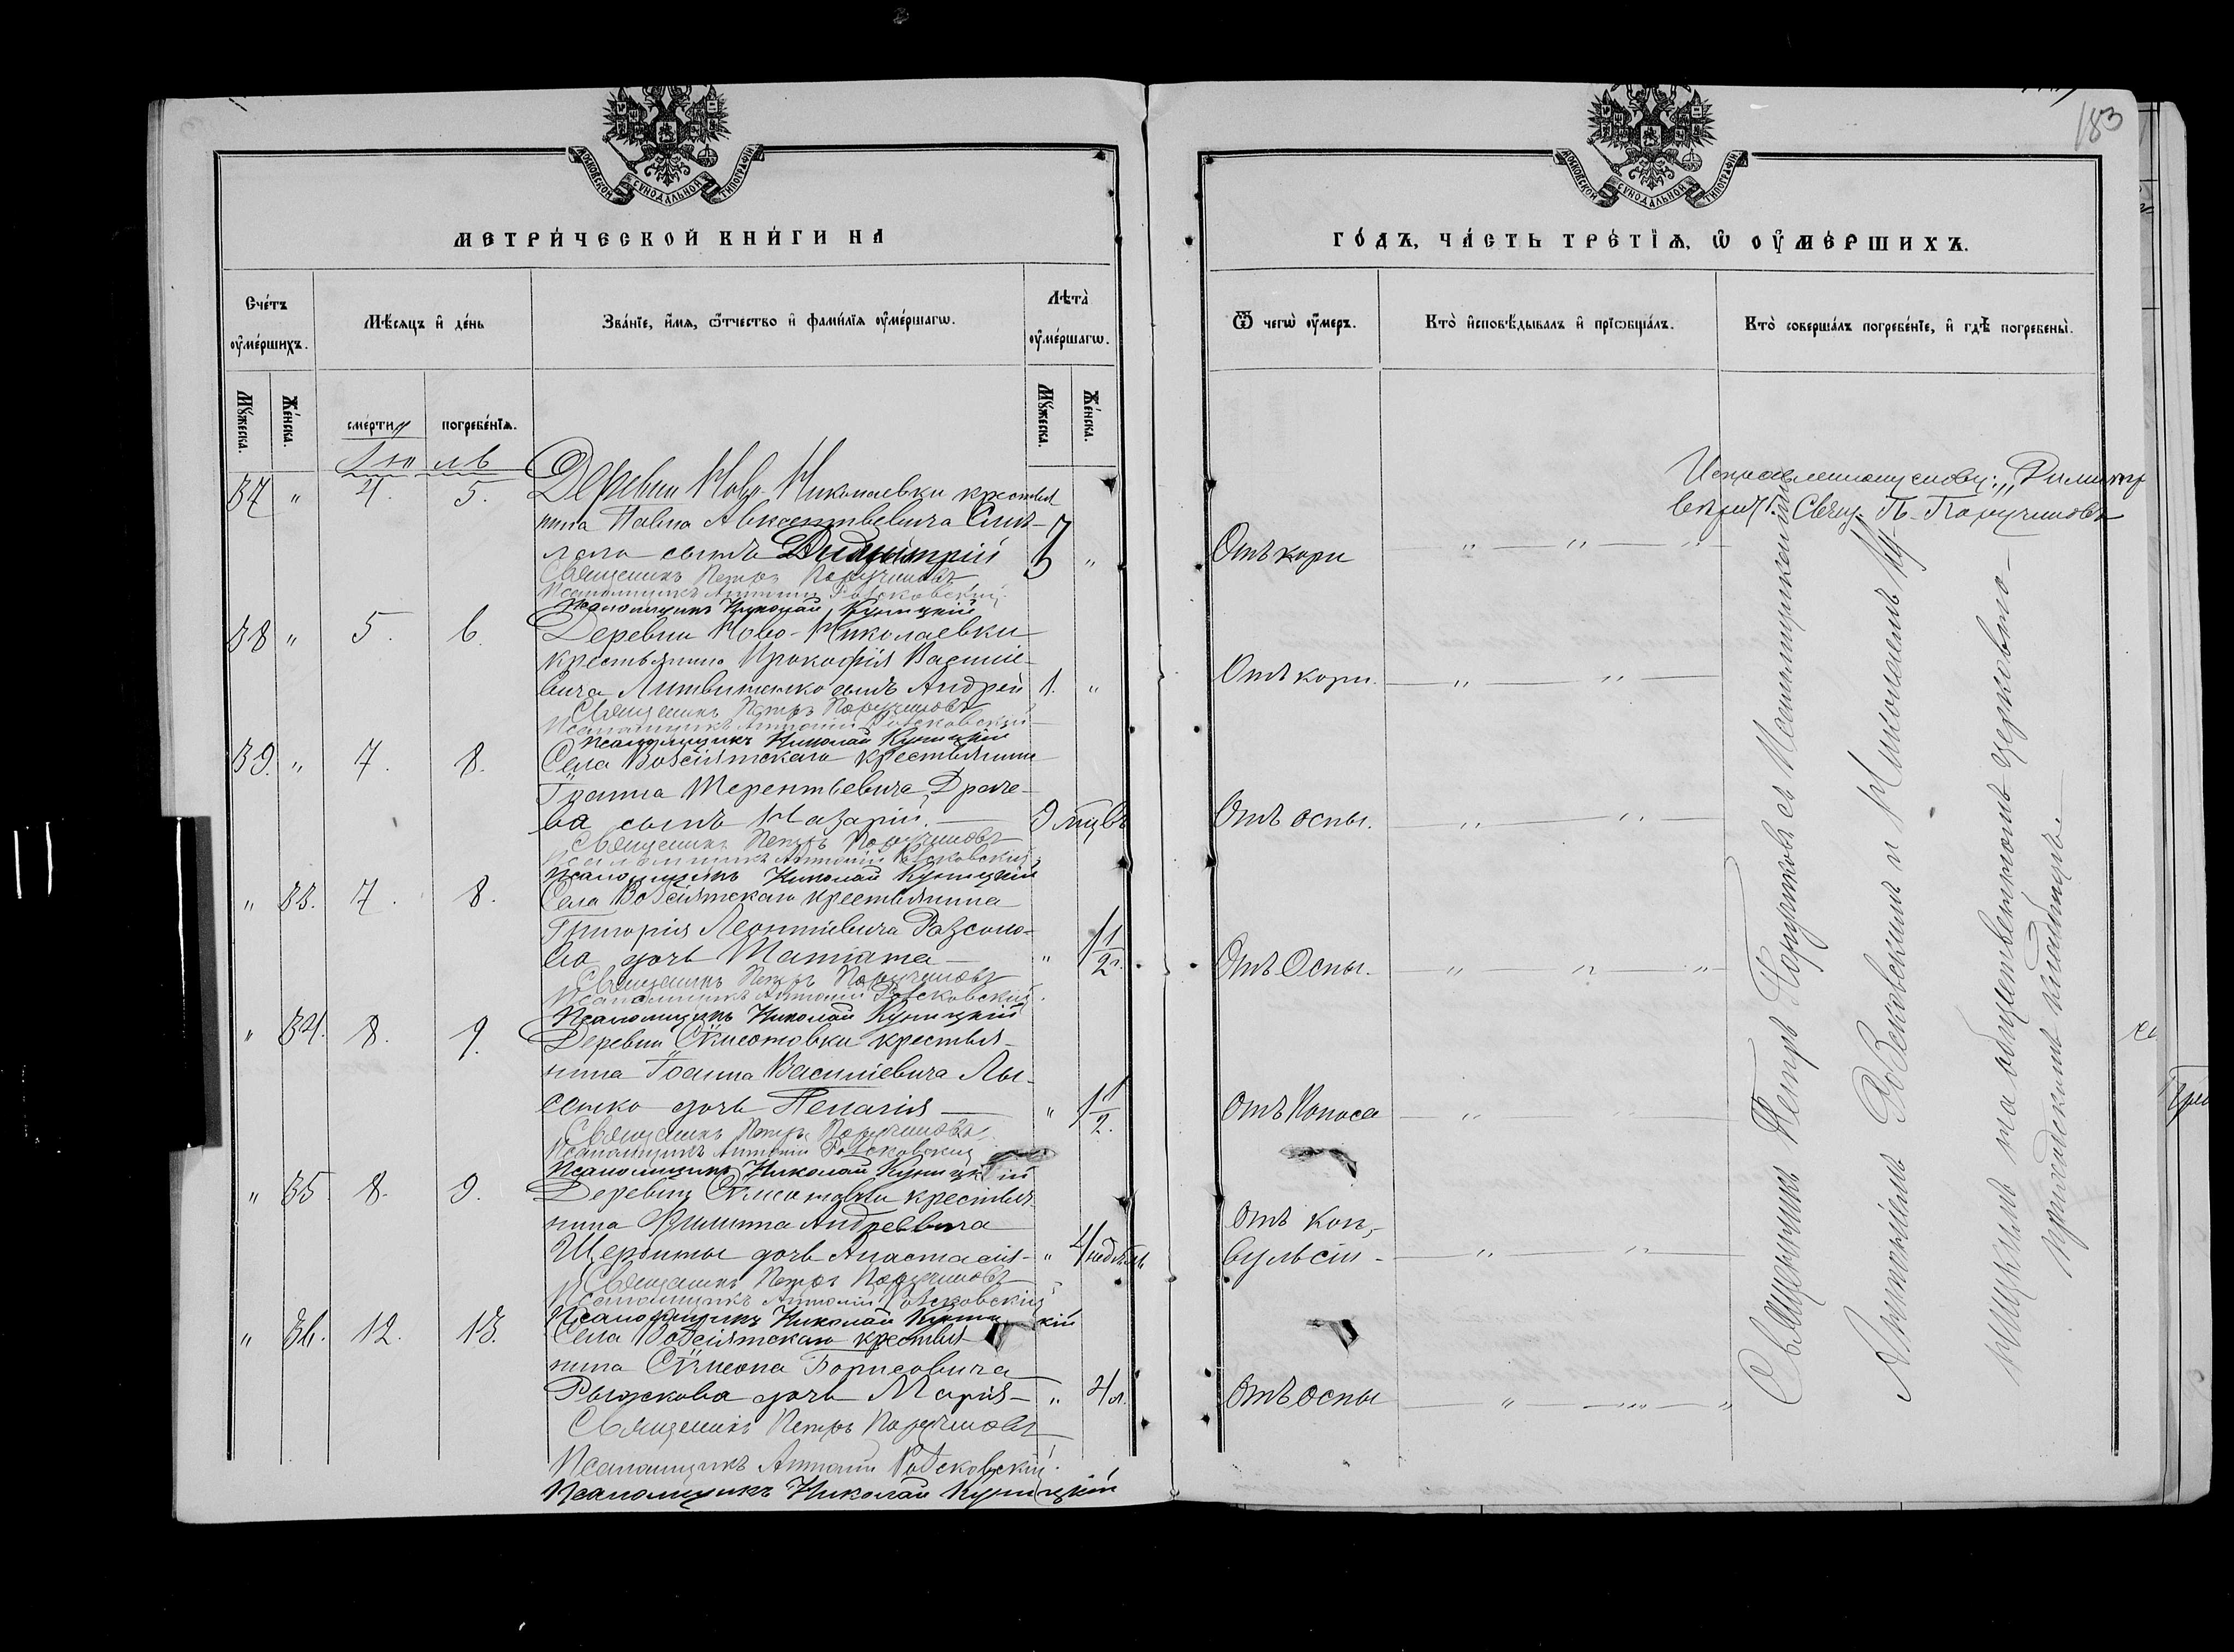 183
МОСКОВСКОЙ СѴНОДАЛЬНОЙ ТИПОГРАФІИ.
МЕТРИ́ЧЕСКОЙ КНИ́ГИ НА
Сче́тъ ᲂу҆ме́ршихъ.
Мѣ́сяцъ и҆ де́нь
Зва́нїе, и҆́мѧ, ѻ҆́тчество и҆ фами́лїѧ ᲂу҆ме́ршагѡ.
Лѣта̀ ᲂу҆ме́ршагѡ.
Мꙋ́жеска.
Же́нска.
сме́рти
погребе́нїѧ.
Мꙋ́жеска.
Же́нска.
Іюль
37 " 4. 5. Деревни Ново-Николаевки крестья
нина Павла Авксентьевича
сынъ Димитрій "
Священникъ Петръ Поручиковъ
Псаломщикъ Антоній Робсковскій
Псаломщикъ Николай Куницкій
38 " 5. 6. Деревни Ново-Николаевки
крестьянина Прокофія Василіе-
вича Литвиненко сынъ Андрей 1. "
Священникъ Петръ Поручиковъ
Псаломщикъ Антоній Робсковскій
Псаломщикъ Николай Куницкій
39. " 7. 8. Села Возсіятскаго крестьянина
Іоанна Терентьевича Драче-
ва сынъ Назарій. 9 мцвъ
Священникъ Петръ Поручиковъ
Псаломщикъ Антоній Робсковскій
Псаломщикъ Николай Куницкій
" 33. 7. 8. Села Возсіятскаго крестьянина
Григорія Леонтіевича Разсоло-
ва дочь Татіана " 1 1/2 г.
Священникъ Петръ Поручиковъ
Псаломщикъ Антоній Робсковскій
Псаломщикъ Николай Куницкій
" 34. 8. 9. Деревни крестья-
нина Іоанна Василіевича Лы-
сенко дочь Пелагія " 1 1/2.
Священникъ Петръ Поручиковъ
Псаломщикъ Антоній Робсковскій
Псаломщикъ Николай Куницкій
" 35 8. 9. Деревни крестья
нина Филиппа Андреевича
Щербины дочь Анастасія " 4 недѣль
Священникъ Петръ Поручиковъ
Псаломщикъ Антоній Робсковскій
Псаломщикъ Николай Куницкій
" 36. 12. 13. Села Возсіятскаго крестья
нина Сѵмеона Борисовича
Рыжкова дочь Марія " 4 л.
Священникъ Петръ Поручиковъ
Псаломщикъ Антоній Робсковскій
Псаломщикъ Николай Куницкій
МОСКОВСКОЙ СѴНОДАЛЬНОЙ ТИПОГРАФІИ.
ГО́ДЪ, ЧА́СТЬ ТРЕ́ТЇѦ, Ѡ҆ ОУ҆МЕ́РШИХЪ.
Ѿ чегѡ̀ ᲂу҆́меръ.
Кто̀ и҆сповѣ́дывалъ и҆ прїѡбща́лъ.
Кто̀ соверша́лъ погребе́нїе, и҆ гдѣ̀ погребены̀.
Исправленному слову: „Димитр
вѣрить. Свящ. П. Поручиковъ
Отъ кори
Отъ кори.
Отъ оспы.
Отъ Оспы.
Отъ Поноса
Отъ кон-
вульсіи
Отъ оспы
Священникъ Петръ Поручиковъ съ Псаломщиками
Антоніемъ Робсковскимъ и Николаемъ Ку-
ницкимъ на общественномъ церковно-
приходскомъ кладбищѣ